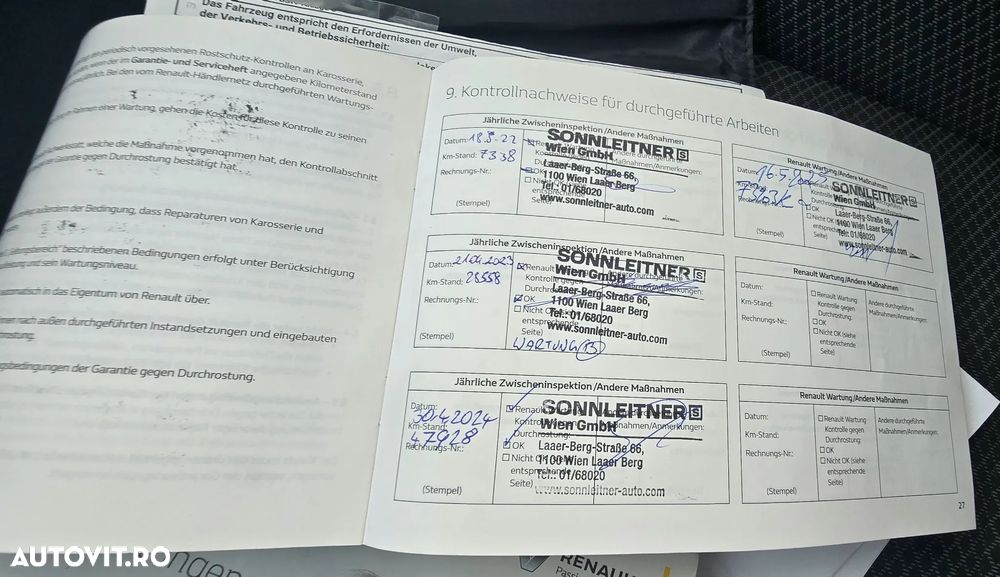 Das Fahrzeug entspricht den Erfordernissen der Umwelt,
der Verkehrs- und Betriebssicherheit:
periodisch vorgesehenen Rostschutz-Kontrollen an Karosserie,
der im Garantie- und Serviceheft angegebene Kilometerstand
Bei den vom Renault-Händlernetz durchgeführten Wartungs-
Rahmen einer Wartung, gehen die Kosten für diese Kontrolle zu seinen
welche die Maßnahme vorgenommen hat, den Kontrollabschnitt
Garantie gegen Durchrostung bestätigt hat.
der Bedingung, dass Reparaturen von Karosserie und
beschriebenen Bedingungen erfolgt unter Berücksichtigung
und sein Wartungsniveau.
in das Eigentum von Renault über.
nach außen durchgeführten Instandsetzungen und eingebauten
der Garantie gegen Durchrostung.
9. Kontrollnachweise für durchgeführte Arbeiten
Jährliche Zwischeninspektion/Andere Maßnahmen
Datum: 18.5.22
Km-Stand: 7338
Rechnungs-Nr.:
(Stempel)
OK
SONNLEITNER S
Wien GmbH
Laaer-Berg-Straße 66,
1100 Wien Laaer Berg
Tel.: 01/68020
www.sonnleitner-auto.com
Renault Wartung/Andere Maßnahmen
Datum:
Rechnungs-Nr.:
(Stempel)
SONNLEITNER S
Wien GmbH
Laaer-Berg-Straße 66,
1100 Wien Laaer Berg
Tel.: 01/68020
www.sonnleitner-auto.com
Jährliche Zwischeninspektion/Andere Maßnahmen
Datum: 21.04.2023
Km-Stand: 28558
Rechnungs-Nr.:
(Stempel)
OK
entsprechende
Seite)
WARTUNG
SONNLEITNER S
Wien GmbH
Laaer-Berg-Straße 66,
1100 Wien Laaer Berg
Tel.: 01/68020
www.sonnleitner-auto.com
Renault Wartung/Andere Maßnahmen
Datum:
Km-Stand:
Rechnungs-Nr.:
(Stempel)
Renault Wartung
Kontrolle gegen
Durchrostung:
OK
Nicht OK (siehe
entsprechende
Seite)
Andere durchgeführte
Maßnahmen/Anmerkungen:
Jährliche Zwischeninspektion/Andere Maßnahmen
Datum:
30.4.2024
Km-Stand:
47928
Rechnungs-Nr.:
(Stempel)
OK
entsprechende
Seite)
SONNLEITNER S
Wien GmbH
Laaer-Berg-Straße 66,
1100 Wien Laaer Berg
Tel.: 01/68020
www.sonnleitner-auto.com
Renault Wartung/Andere Maßnahmen
Datum:
Km-Stand:
Rechnungs-Nr.:
(Stempel)
Renault Wartung
Kontrolle gegen
Durchrostung:
OK
Nicht OK (siehe
entsprechende
Seite)
Andere durchgeführte
Maßnahmen/Anmerkungen:
27
RENAULT
AUTOVIT.RO